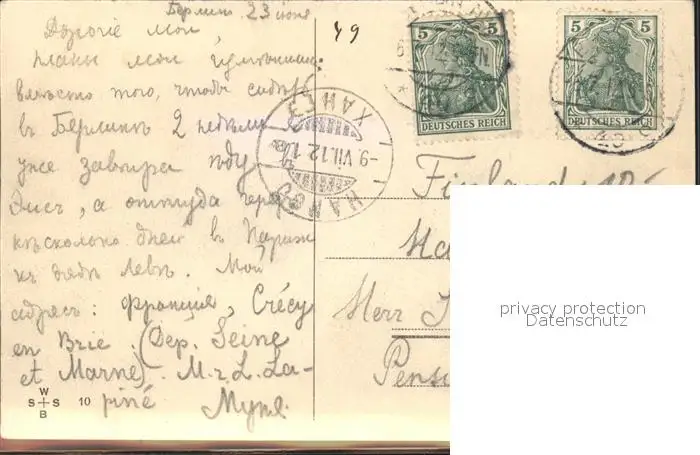 Берлинъ 23 июня
49
Дорогіе мои,
планы мои
вмѣсто того, чтобы сидѣть
въ Берлинѣ 2 недѣли я
уже завтра ѣду въ
Эмсъ, а оттуда черезъ
нѣсколько дней въ Парижъ
къ дядѣ Левѣ. Мой
адресъ: Франція, Crécy
en Brie. (Dép. Seine
et Marne). M-r L. La-
piné Муня.
5 5
DEUTSCHES REICH
5 5
DEUTSCHES REICH
ХАНГЭ
-9.VII.12.
HANGÖ
Finland
Ha
Herr
Pensi
W
S S
B
10
privacy protection
Datenschutz